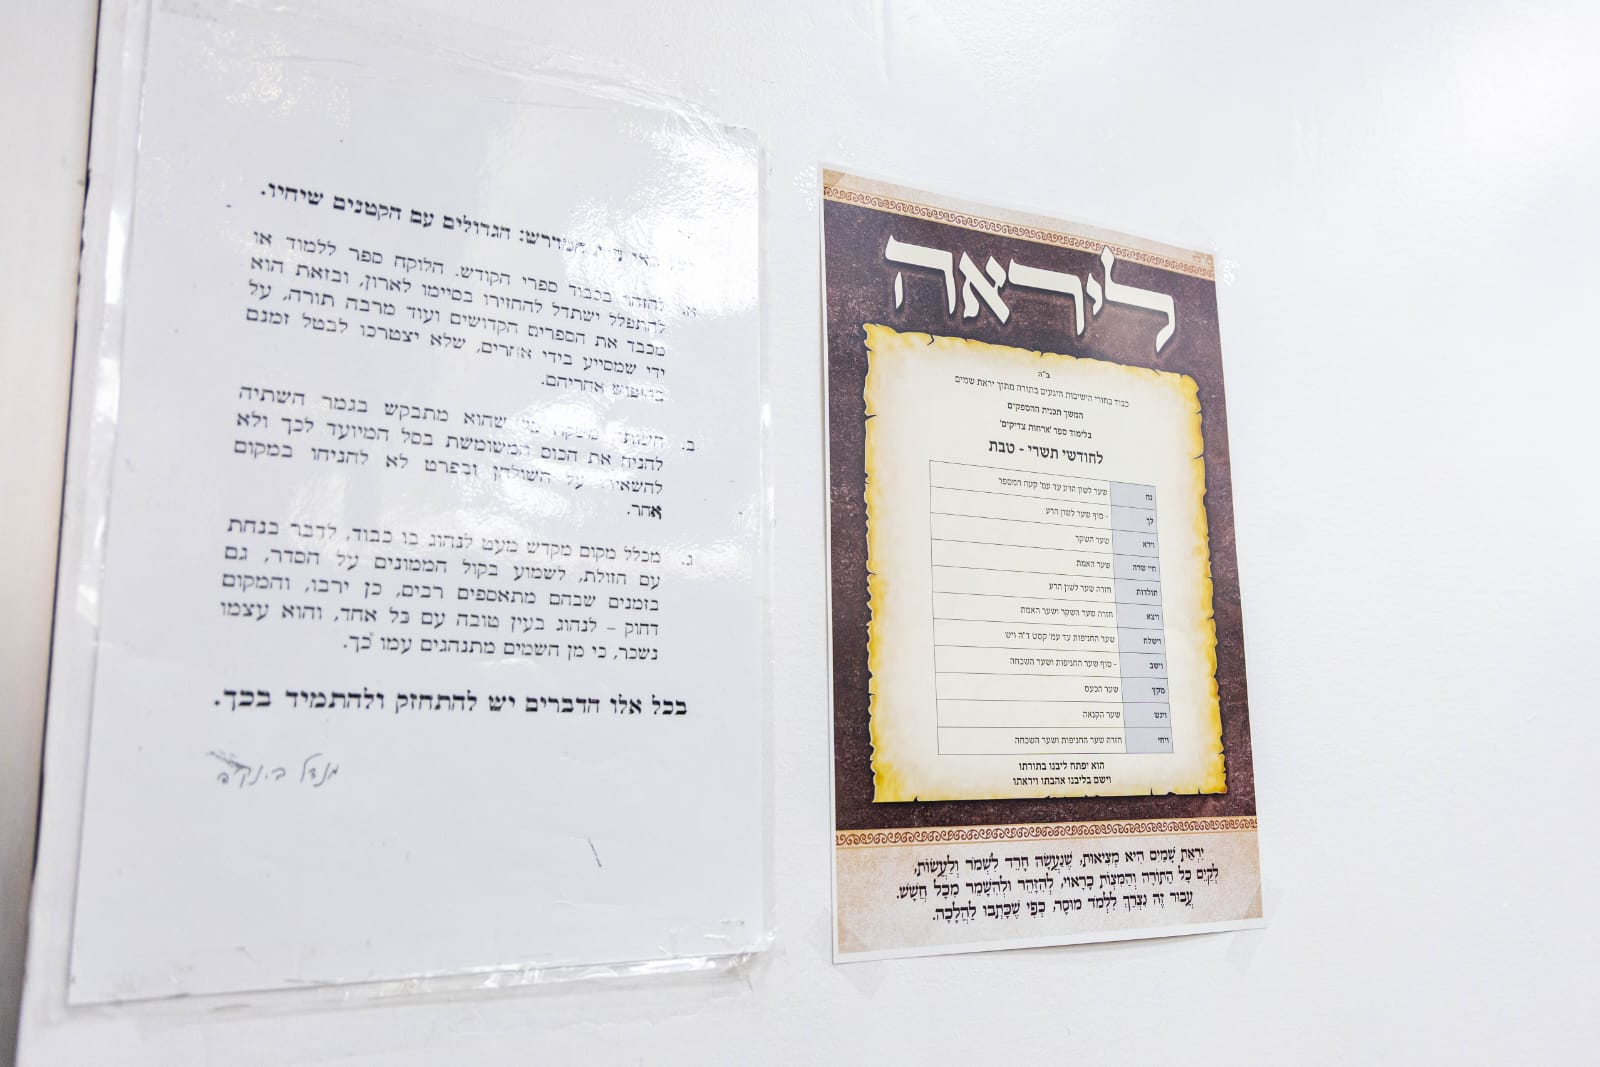 המדרש: הגדולים עם הקטנים שיחיו.
א. להזהר בכבוד ספרי הקודש. הלוקח ספר ללמוד או
להתפלל ישתדל להחזירו בסיימו לארון, ובזאת הוא
מכבד את הספרים הקדושים ועוד מרבה תורה, על
ידי שמסייע בידי אחרים, שלא יצטרכו לבטל זמנם
בחיפוש אחריהם.
ב. השותה שהוא מתבקש בגמר השתיה
להניח את הכוס המשומשת בסל המיועד לכך ולא
להשאירו על השולחן ובפרט לא להניחו במקום
אחר.
ג. מכלל מקום מקדש מעט לנהוג בו כבוד, לדבר בנחת
עם הזולת, לשמוע בקול הממונים על הסדר, גם
בזמנים שבהם מתאספים רבים, כן ירבו, והמקום
דחוק – לנהוג בעין טובה עם כל אחד, והוא עצמו
נשכר, כי מן השמים מתנהגים עמו כך.
בכל אלו הדברים יש להתחזק ולהתמיד בכך.
מנדל
ליראה
ב"ה
כבוד בחורי הישיבות היגעים בתורה מתוך יראת שמים
המשך תכנית ההספקים
בלימוד ספר 'ארחות צדיקים'
לחודשי תשרי - טבת
נח שער לשון הרע עד עמ' קעח המספר
לך - סוף שער לשון הרע
וירא שער השקר
חיי שרה שער האמת
תולדות חזרה שער לשון הרע
ויצא חזרה שער השקר ושער האמת
וישלח שער החניפות עד עמ' קסט ד"ה ויש
וישב - סוף שער החניפות ושער השכחה
מקץ שער הכעס
ויגש שער הקנאה
ויחי חזרה שער החניפות ושער השכחה
הוא יפתח ליבנו בתורתו
וישם בליבנו אהבתו ויראתו
יִרְאַת שָׁמַיִם הִיא מְצִיאוּת, שֶׁנַּעֲשָׂה חָרֵד לִשְׁמֹר וְלַעֲשׂוֹת,
לְקַיֵּם כָּל הַתּוֹרָה וְהַמִּצְוֹת כָּרָאוּי, לְהִזָּהֵר וּלְהִשָּׁמֵר מִכָּל חֲשָׁשׁ.
עֲבוּר זֶה נִצְרַךְ לִלְמֹד מוּסָר, כְּפִי שֶׁכָּתְבוּ לַהֲלָכָה.